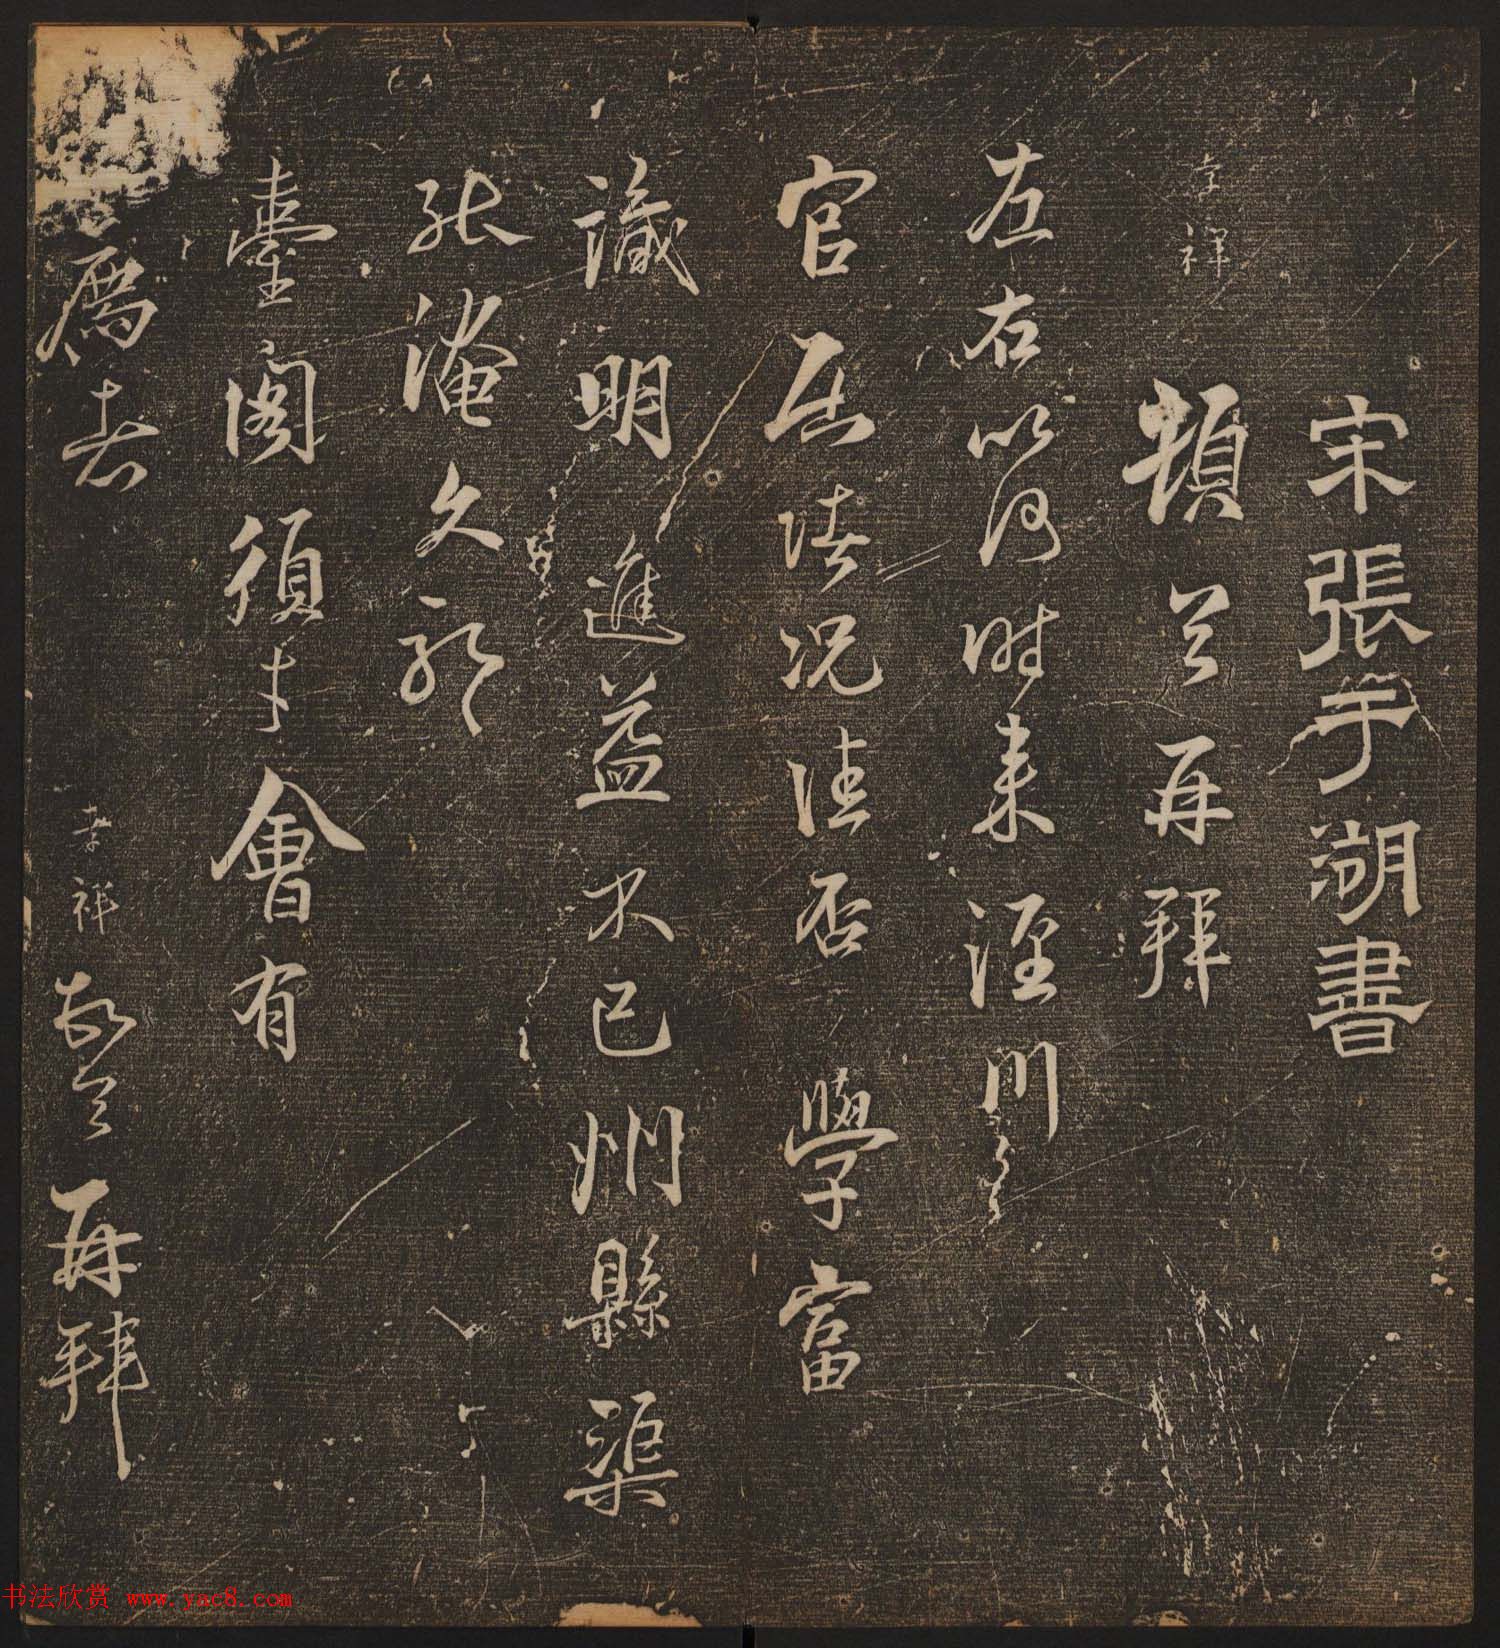 宋張于湖書
孝祥
頓首再拜
左右以何時來涇川
官居情況佳否學富
識明進益不已州縣渠
能淹久耶
臺閣須才會有
薦者孝祥敬空再拜
书法欣赏 www.yac8.com